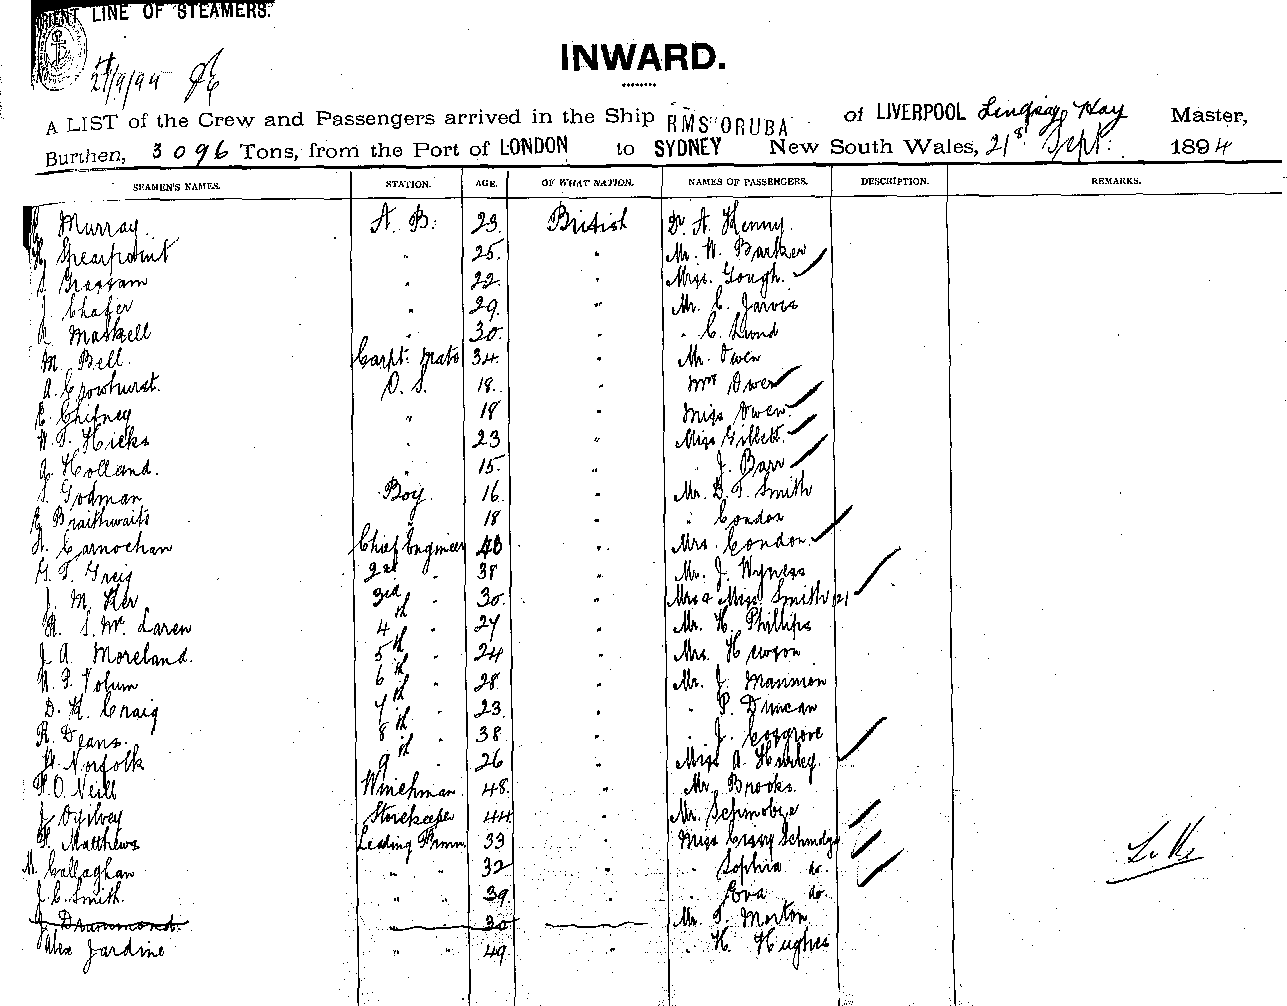 ORIENT LINE OF STEAMERS.
21/9/94
INWARD.
A LIST of the Crew and Passengers arrived in the Ship RMS ORUBA of LIVERPOOL Lindsay Kay Master,
Burthen, 3096 Tons, from the Port of LONDON to SYDNEY New South Wales, 21st Sept. 1894
SEAMEN'S NAMES. STATION. AGE. OF WHAT NATION. NAMES OF PASSENGERS. DESCRIPTION. REMARKS.
Murray. A. B. 23. British Dr A. Kenny.
Spearpoint " 25. " Mr. W. Barker
" 22. " Miss. Gough.
J. Chafer " 29. " Mr. C. Jarvis
Maskell " 30. " " C. Lund
M. Bell. Carpt. Mate 34. " Mr. Owen
A. Crowhurst. O. S. 18. " Mrs Owen
E. Chifney " 18 " Miss Owen
W. T. Hicks " 23 " Miss Gillett.
G. Holland. " 15. " " J. Barr
Godman Boy. 16. " Mr. D. T. Smith
Braithwaite " 18 " " Condon
Carnochan Chief Engineer 40 " Mrs. Condon.
G. T. Greig 2nd " 38 " Mr. J. Wyness
J. M. Ker 3rd " 30. " Mrs & Miss Smith (2)
R. S. Mc Laren 4th " 27 " Mr. H. Phillips
J. A. Moreland. 5th " 24 " Mrs. Hewson
Volum 6th " 28. " Mr. J. Mannion
D. K. Craig 7th " 23. " " P. Duncan
R. Deans. 8th " 38 " " J. Cosgrove
H. Norfolk 9th " 26 " Miss A. Hurley.
O'Neill Winchman 48. " Mr. Brooks.
J. Ogilvey Storekeeper 44 " Mr.
Matthews Leading Firemn 33 " Miss
M. Callaghan " " 32 " " Sophia do.
J. C. Smith. " " 39 " " Eva do
J. Drummond. 30 Mr. T. Morton
Alex Jardine " " 49. " " H. Hughes